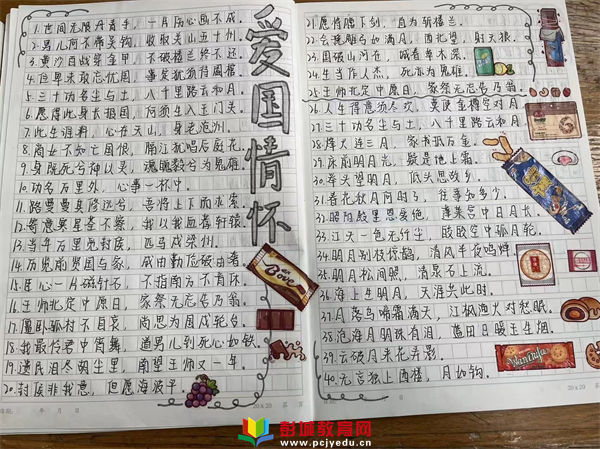 爱国情怀
1.世间无限丹青手,一片伤心画不成。
2.男儿何不带吴钩,收取关山五十州。
3.黄沙百战穿金甲,不破楼兰终不还。
4.位卑未敢忘忧国,事定犹须待阖棺。
5.三十功名尘与土,八千里路云和月。
6.愿得此身长报国,何须生入玉门关。
7.此生谁料,心在天山,身老沧洲。
8.商女不知亡国恨,隔江犹唱后庭花。
9.身既死兮神以灵,魂魄毅兮为鬼雄。
10.功名万里外,心事一杯中。
11.路曼曼其修远兮,吾将上下而求索。
12.寄意寒星荃不察,我以我血荐轩辕。
13.当年万里觅封侯,匹马戍梁州。
14.历览前贤国与家,成由勤俭破由奢。
15.臣心一片磁针石,不指南方不肯休。
16.王师北定中原日,家祭无忘告乃翁。
17.僵卧孤村不自哀,尚思为国戍轮台。
18.我最怜君中宵舞,道男儿到死心如铁。
19.遗民泪尽胡尘里,南望王师又一年。
20.封侯非我意,但愿海波平。
年 月 日
20×20
21.愿得腰下剑,直为斩楼兰。
22.会挽雕弓如满月,西北望,射天狼。
23.国破山河在,城春草木深。
24.生当作人杰,死亦为鬼雄。
25.王师北定中原日,家祭无忘告乃翁。
26.人生得意须尽欢,莫使金樽空对月。
27.三十功名尘与土,八千里路云和月
28.烽火连三月,家书抵万金。
29.床前明月光,疑是地上霜。
30.举头望明月,低头思故乡。
31.春花秋月何时了,往事知多少。
32.昭阳殿里恩爱绝,蓬莱宫中日月长。
33.江天一色无纤尘,皎皎空中孤月轮。
34.明月别枝惊鹊,清风半夜鸣蝉
35.明月松间照,清泉石上流。
36.海上生明月,天涯共此时。
37.月落乌啼霜满天,江枫渔火对愁眠。
38.沧海月明珠有泪,蓝田日暖玉生烟。
39.云破月来花弄影。
40.无言独上西楼,月如钩。
20×20
彭城教育网
www.pcjyedu.cn